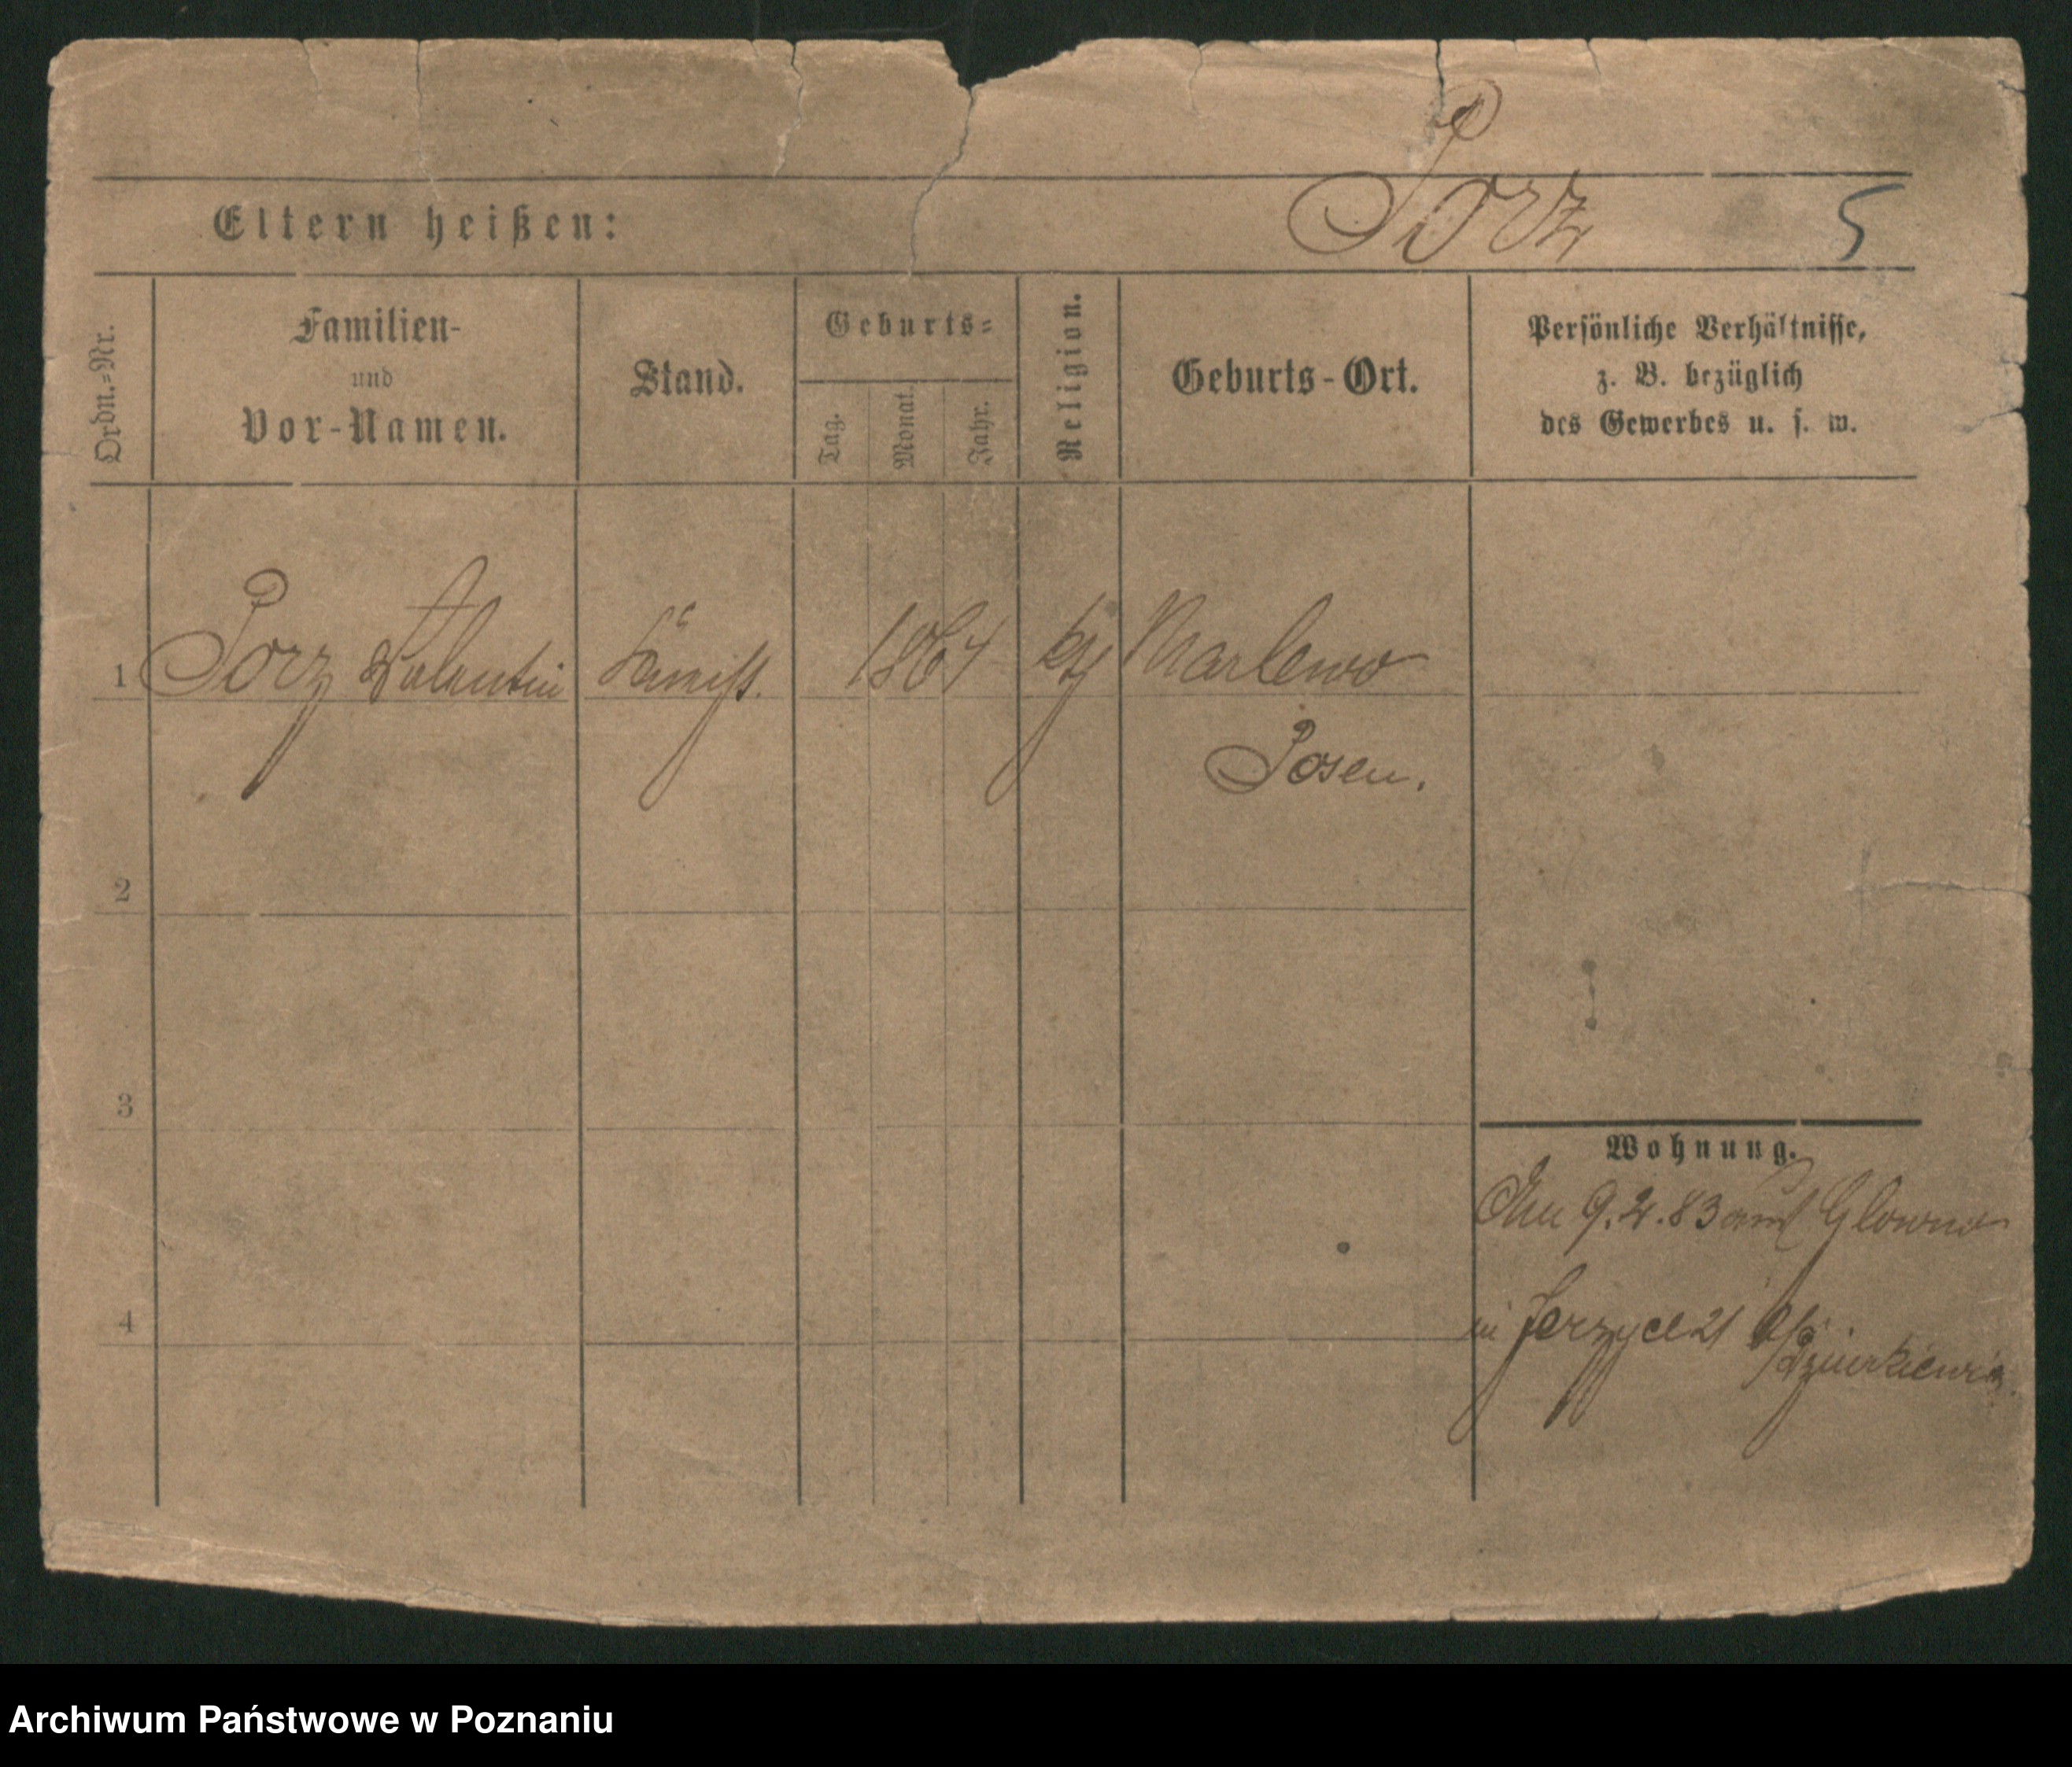 Porz 5
Eltern heißen:
Ordn.=Nr.
Familien-
und
Vor-Namen.
Stand.
Geburts=
Tag.
Monat.
Jahr.
Religion.
Geburts-Ort.
Persönliche Verhältnisse,
z. B. bezüglich
des Gewerbes u. s. w.
1 Porz Valentin 1864 Marlewo
Posen.
2
3
Wohnung.
9.2.83 Glowno
4
in Jerzyce 21
Archiwum Państwowe w Poznaniu